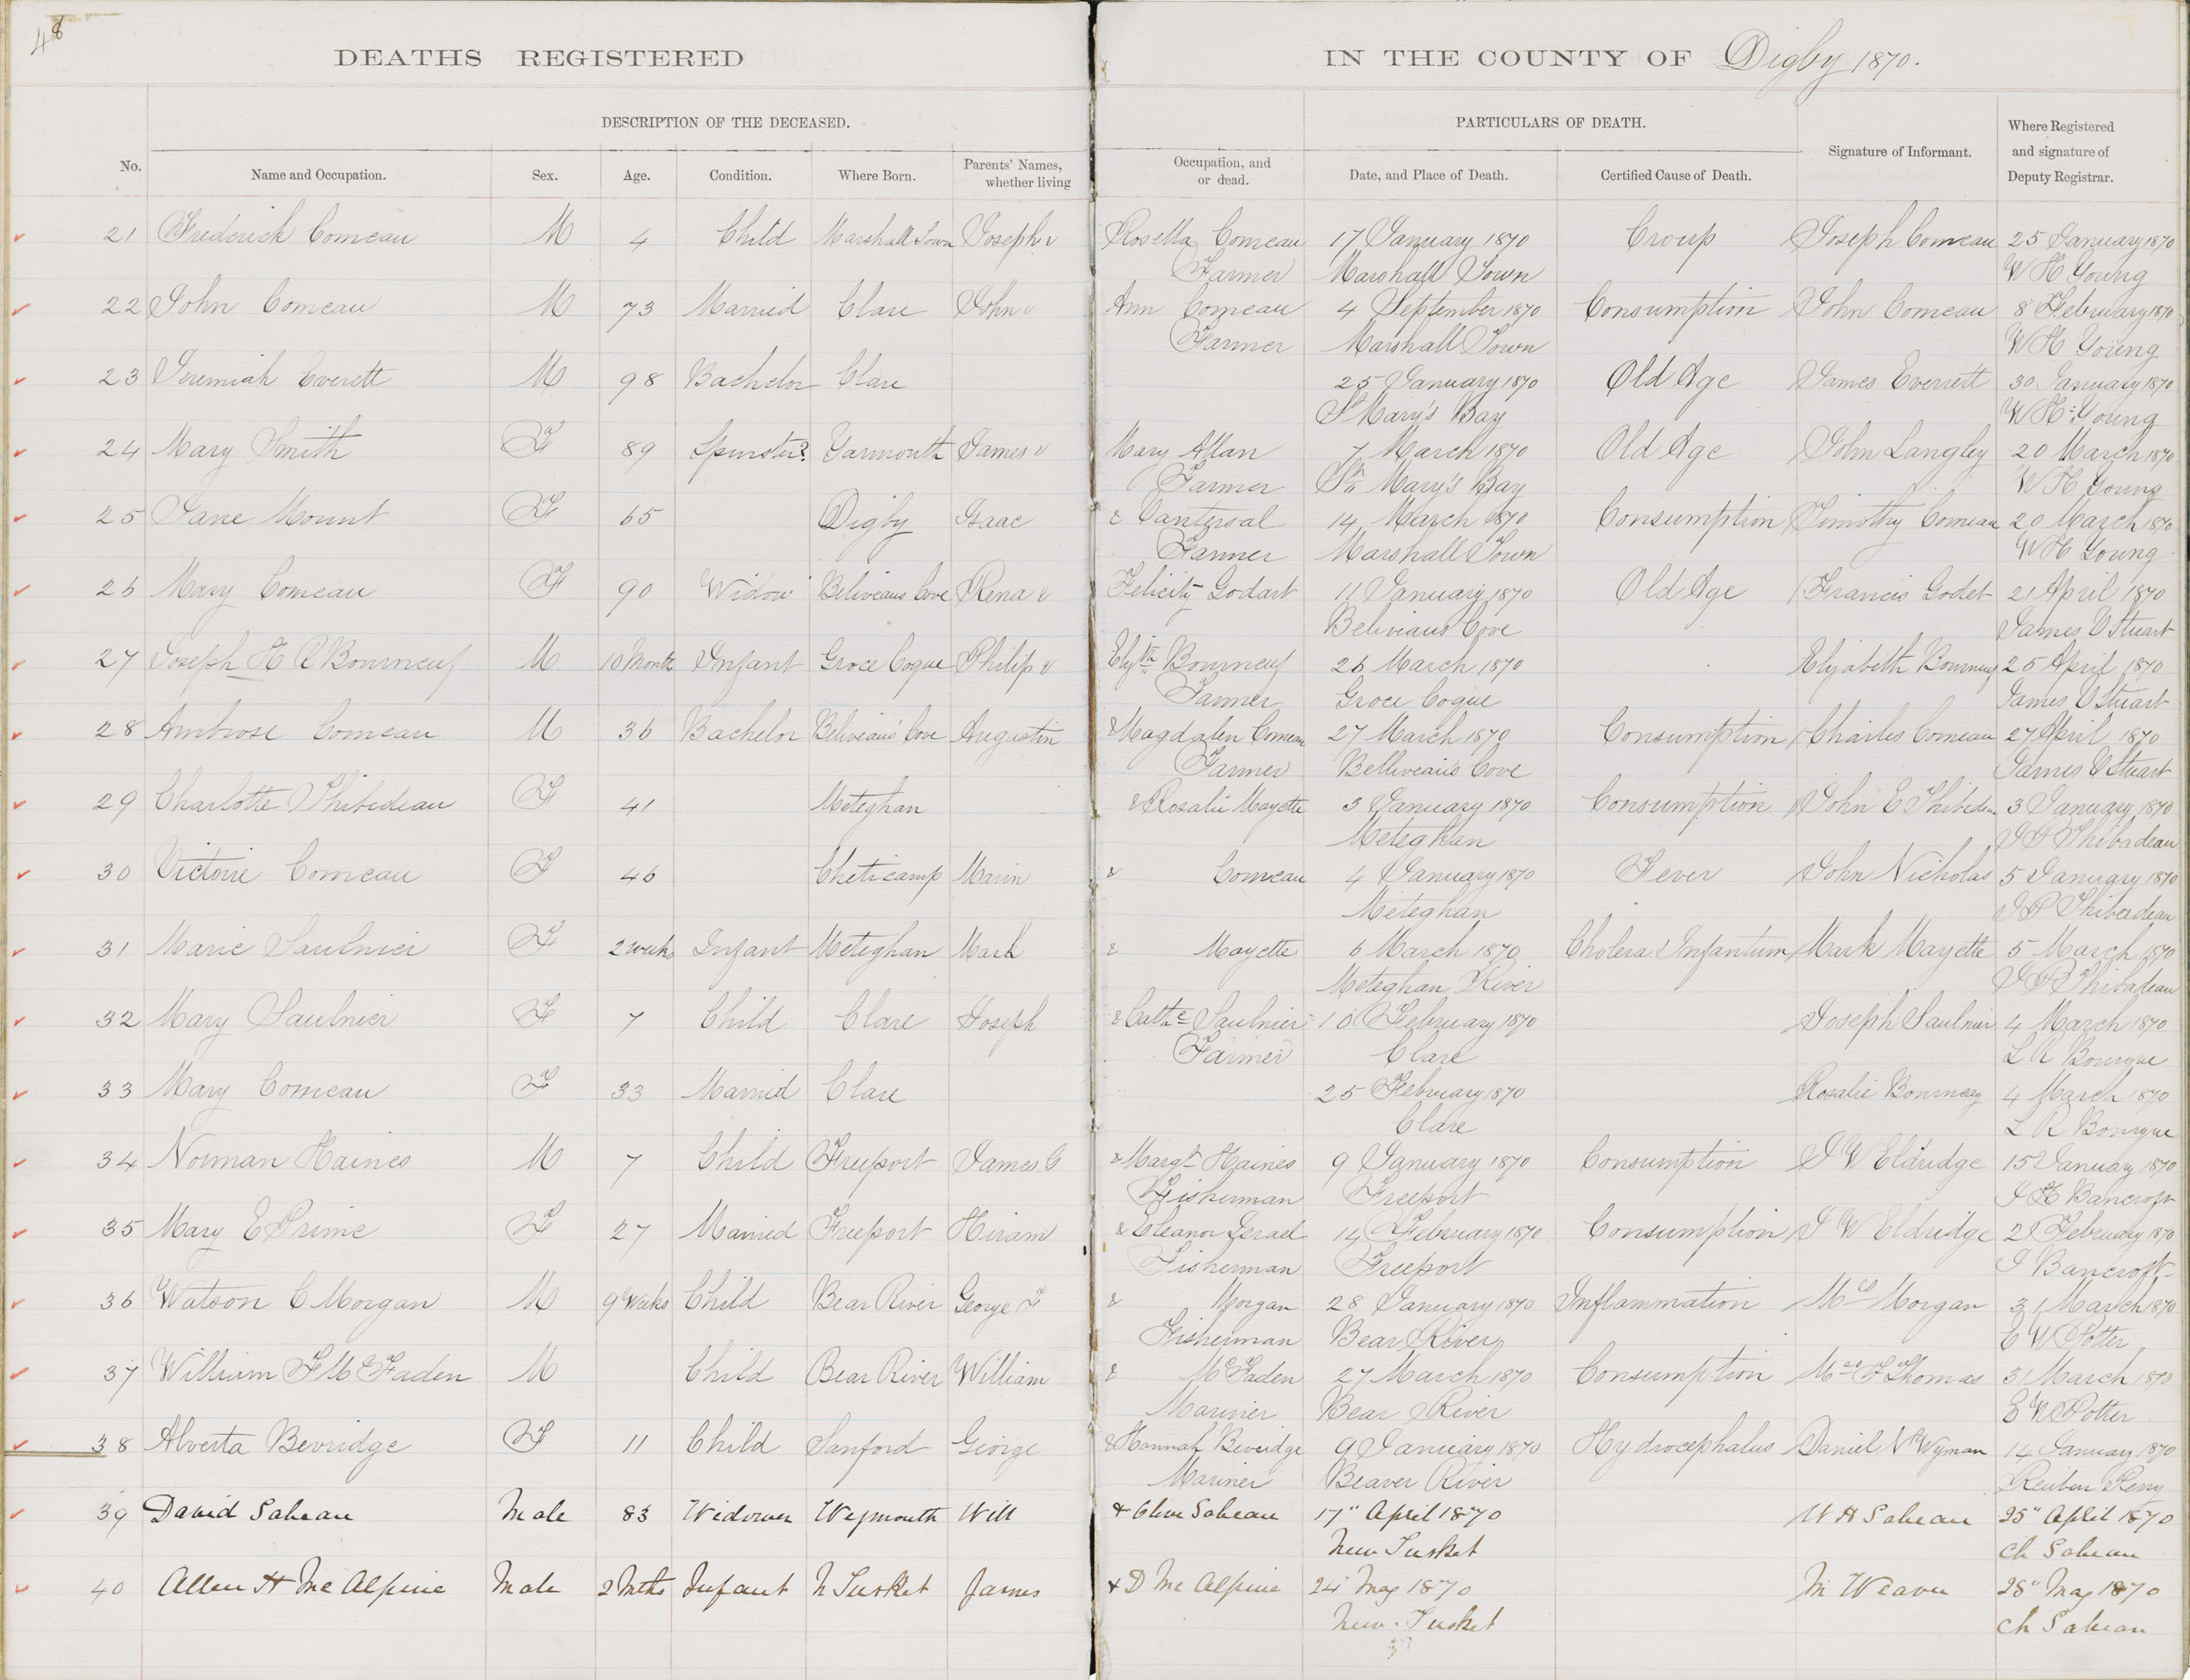 48
DEATHS REGISTERED IN THE COUNTY OF Digby 1870.
DESCRIPTION OF THE DECEASED. PARTICULARS OF DEATH.
No. Name and Occupation. Sex. Age. Condition. Where Born. Parents' Names, whether living Occupation, and or dead. Date, and Place of Death. Certified Cause of Death. Signature of Informant. Where Registered and signature of Deputy Registrar.
21 Frederick Comeau M 4 Child Marshall Town Joseph & Rosella Comeau 17 January 1870 Croup Joseph Comeau 25 January 1870
Farmer Marshall Town W H Young
22 John Comeau M 73 Married Clare John & Ann Comeau 4 September 1870 Consumption John Comeau 8 February 1870
Farmer Marshall Town W H Young
23 Jeremiah Everett M 98 Bachelor Clare 25 January 1870 Old Age James Everrett 30 January 1870
St Mary's Bay W H Young
24 Mary Smith F 89 Spinster? Yarmouth James & Mary Allan 7 March 1870 Old Age John Langley 20 March 1870
Farmer St Mary's Bay W H Young
25 Jane Mount F 65 Digby Isaac & Vantersal 14 March 1870 Consumption Timothy Comeau 20 March 1870
Farmer Marshall Town W H Young
26 Mary Comeau F 90 Widow Beliveaus Cove Rena & Felicity Godart 11 January 1870 Old Age Francis Godet 21 April 1870
Beliveaus Cove James V Stuart
27 Joseph H R Bourneuf M 10 Month Infant Groce Coque Philip & Elyth Bourneuf 26 March 1870 Elizabeth Bourneuf 25 April 1870
Farmer Groce Coque James V Stuart
28 Ambrose Comeau M 36 Bachelor Beliveau's Cove Augustin & Magdalen Comeau 27 March 1870 Consumption Charles Comeau 27 April 1870
Farmer Belliveau's Cove James V Stuart
29 Charlotte Thibedeau F 41 Meteghan & Rosalie Mayette 3 January 1870 Consumption John E Thibedeau 3 January 1870
Meteghan Thibadeau
30 Victoire Comeau F 46 Cheticamp Marin & Comeau 4 January 1870 Fever John Nicholas 5 January 1870
Meteghan Thiberdeau
31 Marie Saulnier F 2 weeks Infant Meteghan Mark & Mayette 6 March 1870 Cholera Infantum Mark Mayette 5 March 1870
Meteghan River Thibadeau
32 Mary Saulnier F 7 Child Clare Joseph & Cathe Saulnier 10 February 1870 Joseph Saulnier 4 March 1870
Farmer Clare L R Bourque
33 Mary Comeau F 33 Married Clare 25 February 1870 Rosalie Bourneuf 4 March 1870
Clare L R Bourque
34 Norman Haines M 7 Child Freeport James G & Margt Haines 9 January 1870 Consumption J W Eldridge 15 January 1870
Fisherman Freeport J H Bancroft
35 Mary E Prime F 27 Married Freeport Hiram & Eleanor Israel 14 February 1870 Consumption J W Eldridge 28 February 1870
Fisherman Freeport J Bancroft
36 Watson C Morgan M 9 Weeks Child Bear River George F & Morgan 28 January 1870 Inflammation Mrs Morgan 31 March 1870
Fisherman Bear River E W Potter
37 William F McFaden M Child Bear River William & McFaden 27 March 1870 Consumption Mrs F Thomas 31 March 1870
Marinier Bear River E W Potter
38 Alverta Bevridge F 11 Child Sanford George & Hannah Beveridge 9 January 1870 Hydrocephalus Daniel N Wyman 14 January 1870
Mariner Beaver River Reuben Perry
39 David Sabean Male 83 Widower Weymouth Will & Olive Sabean 17" April 1870 W H Sabean 25" April 1870
New Tusket Ch Sabean
40 Allen H Mc Alpine Male 2 Mths Infant N Tusket James & D Mc Alpine 24 May 1870 M Weaver 28" May 1870
New Tusket Ch Sabean